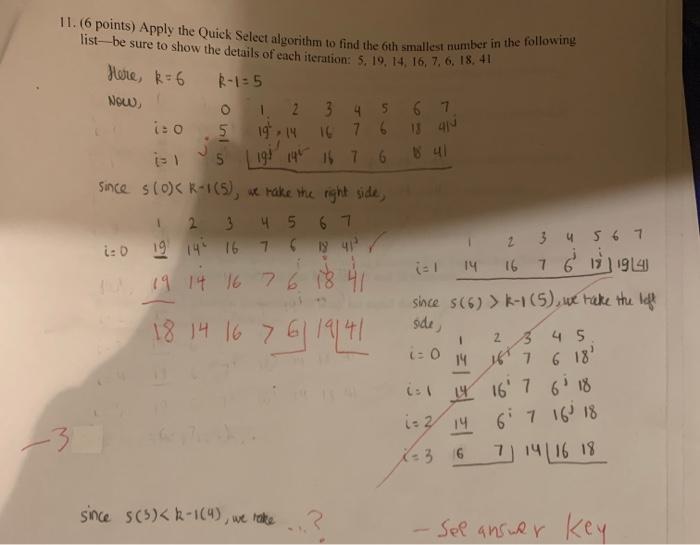 11. (6 points) Apply the Quick Select algorithm to find the 6th smallest number in the following
list—be sure to show the details of each iteration: 5, 19, 14, 16, 7, 6, 18, 41
Here, k=6 k-1=5
Now,
0 1 2 3 4 5 6 7
i=0 5 19i 14 16 7 6 18 41j
i=1 5j 19i 14 16 7 6 18 41
since s(0)<k-1(5), we take the right side,
1 2 3 4 5 6 7
i=0 19 14i 16 7 6 18 41j
19 14 16 7 6 18j 41i
18 14 16 7 6 | 19 | 41
-3
1 2 3 4 5 6 7
i=1 14 16 7 6 18 | 19 | 41
since s(6) > k-1(5), we take the left
side,
1 2 3 4 5
i=0 14 16i 7 6 18j
i=1 14 16i 7 6j 18
i=2 14 6i 7 16j 18
i=3 6 7 | 14 | 16 18
since s(3)<k-1(4), we take ...?
- See answer key